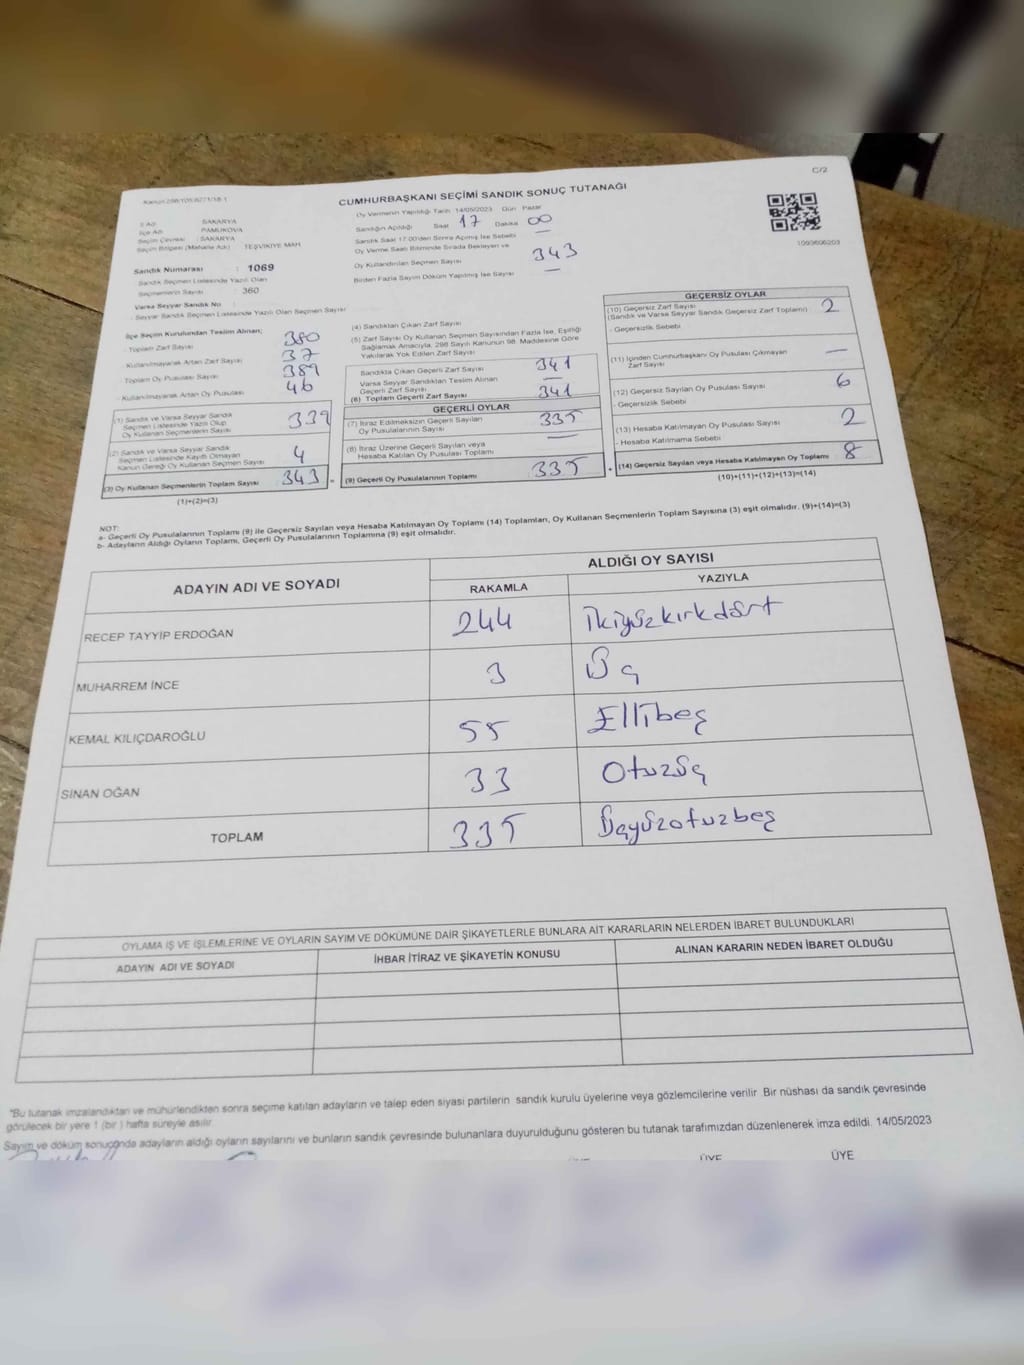 C/2
CUMHURBAŞKANI SEÇİMİ SANDIK SONUÇ TUTANAĞI
İl Adı : SAKARYA
İlçe Adı : PAMUKOVA
Seçim Çevresi : SAKARYA
Seçim Bölgesi (Mahalle Adı) : TEŞVİKİYE MAH.
Sandık Numarası : 1069
Sandık Seçmen Listesinde Yazılı Olan
Seçmenlerin Sayısı : 360
Varsa Seyyar Sandık No :
- Seyyar Sandık Seçmen Listesinde Yazılı Olan Seçmen Sayısı :
Oy Vermenin Yapıldığı Tarih 14/05/2023 Gün Pazar
Sandığın Açıldığı Saat 17 Dakika 00
Sandık Saat 17.00'den Sonra Açılmış İse Sebebi —
Oy Verme Saati Bitiminde Sırada Bekleyen ve
Oy Kullandırılan Seçmen Sayısı 343
Birden Fazla Sayım Döküm Yapılmış İse Sayısı —
1093606203
İlçe Seçim Kurulundan Teslim Alınan;
- Toplam Zarf Sayısı 380
- Kullanılmayarak Artan Zarf Sayısı 37
- Toplam Oy Pusulası Sayısı 389
- Kullanılmayarak Artan Oy Pusulası 46
(1) Sandık ve Varsa Seyyar Sandık
Seçmen Listesinde Yazılı Olup
Oy Kullanan Seçmenlerin Sayısı 339
(2) Sandık ve Varsa Seyyar Sandık
Seçmen Listesinde Kayıtlı Olmayan
Kanun Gereği Oy Kullanan Seçmen Sayısı 4
(3) Oy Kullanan Seçmenlerin Toplam Sayısı 343
(1)+(2)=(3)
(4) Sandıktan Çıkan Zarf Sayısı
(5) Zarf Sayısı Oy Kullanan Seçmen Sayısından Fazla İse, Eşitliği
Sağlamak Amacıyla, 298 Sayılı Kanunun 98. Maddesine Göre
Yakılarak Yok Edilen Zarf Sayısı
Sandıkta Çıkan Geçerli Zarf Sayısı 341
Varsa Seyyar Sandıktan Teslim Alınan
Geçerli Zarf Sayısı —
(6) Toplam Geçerli Zarf Sayısı 341
GEÇERLİ OYLAR
(7) İtiraz Edilmeksizin Geçerli Sayılan
Oy Pusulalarının Sayısı 335
(8) İtiraz Üzerine Geçerli Sayılan veya
Hesaba Katılan Oy Pusulası Toplamı —
(9) Geçerli Oy Pusulalarının Toplamı 335
GEÇERSİZ OYLAR
(10) Geçersiz Zarf Sayısı 2
(Sandık ve Varsa Seyyar Sandık Geçersiz Zarf Toplamı)
- Geçersizlik Sebebi
(11) İçinden Cumhurbaşkanı Oy Pusulası Çıkmayan
Zarf Sayısı —
(12) Geçersiz Sayılan Oy Pusulası Sayısı 6
- Geçersizlik Sebebi
(13) Hesaba Katılmayan Oy Pusulası Sayısı 2
- Hesaba Katılmama Sebebi
(14) Geçersiz Sayılan veya Hesaba Katılmayan Oy Toplamı 8
(10)+(11)+(12)+(13)=(14)
NOT:
a- Geçerli Oy Pusulalarının Toplamı (9) ile Geçersiz Sayılan veya Hesaba Katılmayan Oy Toplamı (14) Toplamları, Oy Kullanan Seçmenlerin Toplam Sayısına (3) eşit olmalıdır. (9)+(14)=(3)
b- Adayların Aldığı Oyların Toplamı, Geçerli Oy Pusulalarının Toplamına (9) eşit olmalıdır.
ADAYIN ADI VE SOYADI ALDIĞI OY SAYISI
RAKAMLA YAZIYLA
RECEP TAYYİP ERDOĞAN 244 İkiyüzkırkdört
MUHARREM İNCE 3 Üç
KEMAL KILIÇDAROĞLU 55 Ellibeş
SİNAN OĞAN 33 Otuzüç
TOPLAM 335 Üçyüzotuzbeş
OYLAMA İŞ VE İŞLEMLERİNE VE OYLARIN SAYIM VE DÖKÜMÜNE DAİR ŞİKAYETLERLE BUNLARA AİT KARARLARIN NELERDEN İBARET BULUNDUKLARI
ADAYIN ADI VE SOYADI İHBAR İTİRAZ VE ŞİKAYETİN KONUSU ALINAN KARARIN NEDEN İBARET OLDUĞU
"Bu tutanak imzalandıktan ve mühürlendikten sonra seçime katılan adayların ve talep eden siyasi partilerin sandık kurulu üyelerine veya gözlemcilerine verilir. Bir nüshası da sandık çevresinde
görülecek bir yere 1 (bir ) hafta süreyle asılır.
Sayım ve döküm sonucunda adayların aldığı oyların sayılarını ve bunların sandık çevresinde bulunanlara duyurulduğunu gösteren bu tutanak tarafımızdan düzenlenerek imza edildi. 14/05/2023
ÜYE ÜYE ÜYE